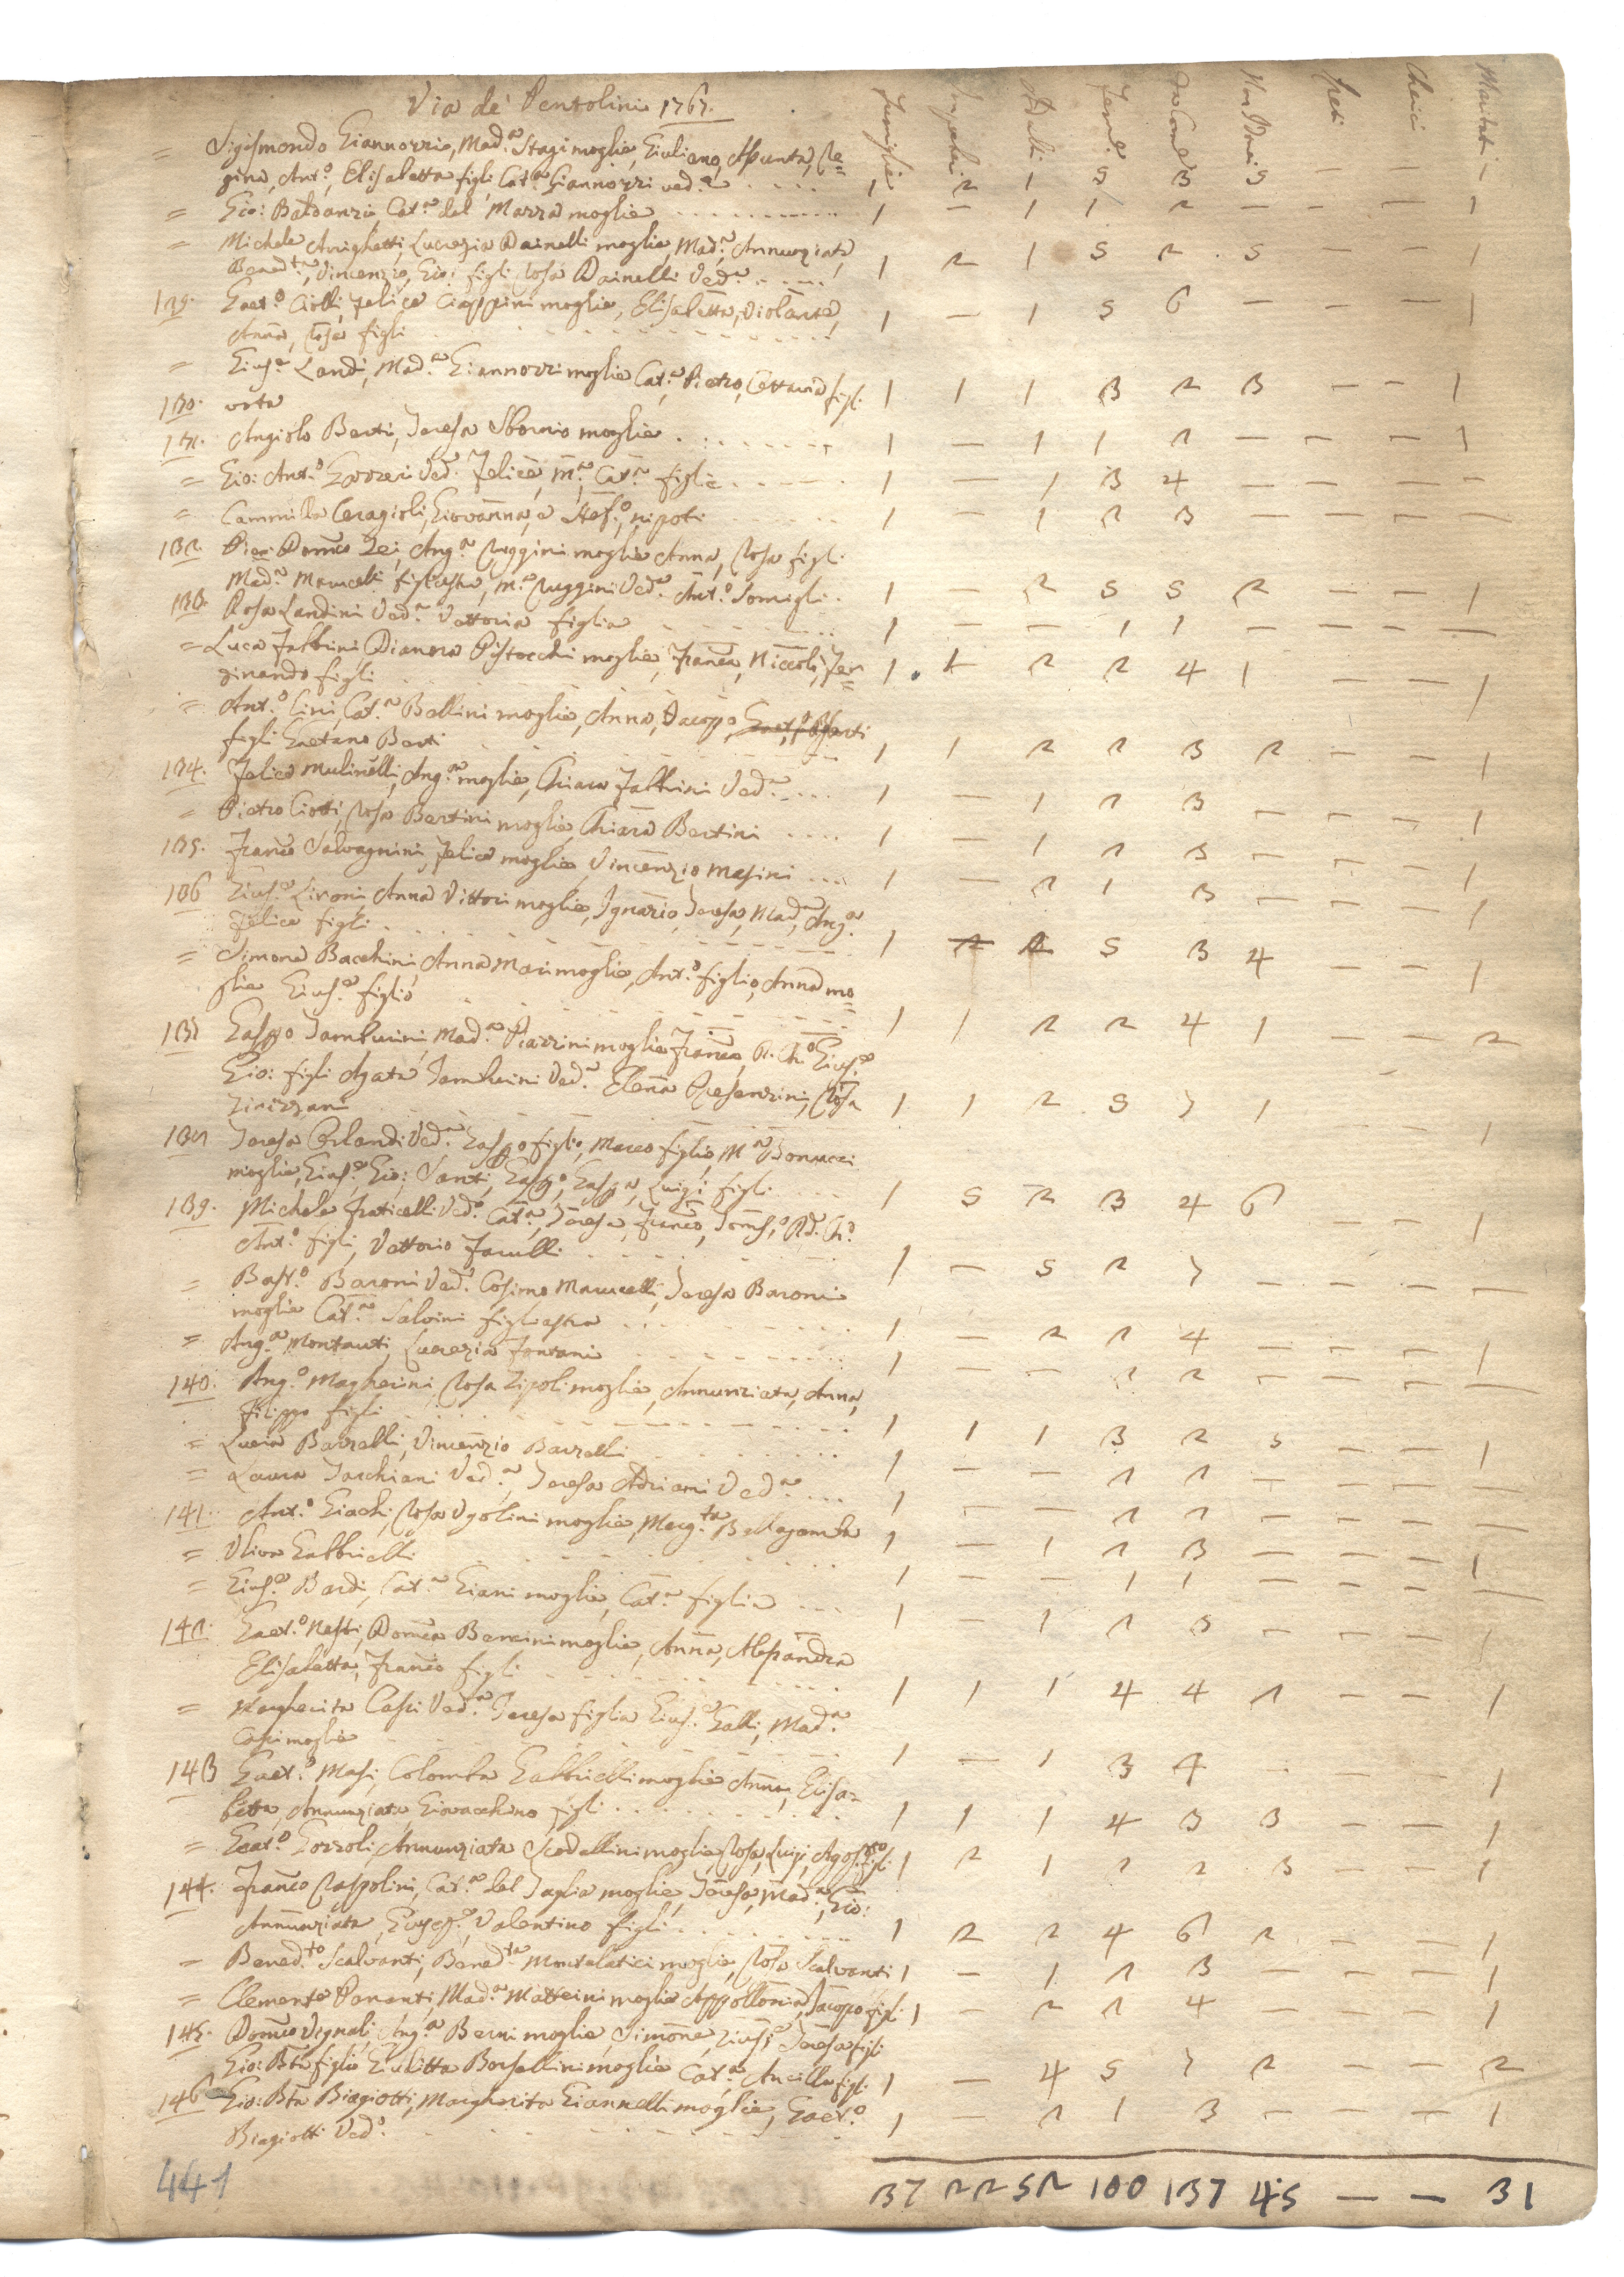 Via de Pentolini 1767.
Famiglie Impuberi Adulti Fem.e da Com.e Non Com. Preti Cherici Maritati
= Sigismondo Giannozzi, Mad.a Stagi moglie, Giuliano, Assunta, Re=
gina, Ant.o, Elisabetta figli Cat.a Giannozzi ved.a 1 2 1 5 3 5 — — 1
= Gio: Baldanzi Cat.a del Mazza moglie 1 — 1 1 2 — — — 1
= Michele Arrighetti, Lucrezia Dainelli moglie, Mad.a, Annunziata,
Bened.ta, Vincenzio, Gio: figli Rosa Dainelli Ved.a 1 2 1 5 2 5 — — 1
129. Gaet.o Ciolli, Felice Ciappini moglie, Elisabetta, Violante,
Anna, Rosa figli 1 — 1 5 6 — — — 1
= Gius.e Landi, Mad.a Giannozzi moglie Cat.a Pietro, Ottavia figli 1 1 1 3 2 3 — — 1
130. orto
131. Angiolo Berti, Teresa Sbornio moglie 1 — 1 1 2 — — — 1
= Gio: Ant.o Gozzeri Ved.o Felice, M.a, Cat.a figlie 1 — 1 3 4 — — — —
= Cammilla Ceragioli, Giovanna, e Stef.o nipoti 1 — 1 2 3 — — —
132. Pier Dom.co Zei, Ang.a Ruggini moglie Anna, Rosa figli
Mad.a Marucelli figliastra, M.a Ruggini Ved.a Ant.o Somigli 1 — 2 5 5 2 — — 1
133. Rosa Landini Ved.a Vettoria figlia 1 — — 1 1 — — — —
= Luca Fabbrini Dianora Pistocchi moglie, Fran.ca, Niccolò, Fer=
dinando figli 1 1 2 2 4 1 — — 1
= Ant.o Cini, Cat.a Bellini moglie, Anna, Jacopo
figli Gaetano Berti 1 1 2 2 3 2 — — 1
134. Felice Mulinelli, Ang.a moglie, Chiara Fabbrini Ved.a 1 — 1 2 3 — — — 1
= Pietro Ciotti, Rosa Bertini moglie Chiara Bertini 1 — 1 2 3 — — — 1
135. Fran.co Salvagnini, Felice moglie, Vincenzio Masini 1 — 2 1 3 — — — 1
136 Gius.e Lironi Anna Vittori moglie, Ignazio, Teresa, Mad.a, Ang.a
Felice figli 1 2 2 5 3 4 — — 1
= Simone Bacchini, Anna Mari moglie, Ant.o figlio, Anna mo=
glie Gius.e figlio 1 1 2 2 4 1 — — 2
137 Gasp.o Tamburini Mad.a Piazzini moglie Fran.co, R. Ch.o Gius.e
Gio: figli Agata Tamburini Ved.a Elena Presenzini, Rosa
1 1 2 5 7 1 1
138 Teresa Orlandi Ved.a Gasp.o figlio, Marco figlio, M.a Bonucci
moglie, Gius.e, Gio: Santi, Gasp.o, Gasp.a, Luigi figli 1 5 2 3 4 6 — — 1
139. Michele Fraticelli Ved.o Cat.a, Teresa, Fran.co, Tom.so, R.d Ch.o
Ant.o figli, Vettorio Facilli 1 — 5 2 7 — — — —
= Bast.o Baroni Ved.o Cosimo Marucelli, Teresa Baroni
moglie Cat.a Salvini figliastra 1 — 2 2 4 — — — 1
= Ang.a Montauti, Lucrezia Fontani 1 — — 2 2 — — — —
140. Ang.o Magherini Rosa Zipoli moglie, Annunziata, Anna,
Filippo figli 1 1 1 3 2 3 — — 1
= Lucia Bazzelli, Vincenzio Bazzelli 1 — — 2 2 — — — —
= Laura Tarchiani Ved.a, Teresa Adriani Ved.a 1 — — 2 2 — — — —
141. Ant.o Giachi, Rosa Ugolini moglie, Marg.ta Bellagamba 1 — 1 2 3 — — — 1
= Uliva Gabbrielli 1 — — 1 1 — — — —
= Gius.e Bardi, Cat.a Giani moglie, Cat.a figlia 1 — 1 2 3 — — — 1
142. Gaet.o Nesti, Dom.ca Bencini moglie, Anna, Alessandra
Elisabetta, Fran.co figli 1 1 1 4 4 2 — — 1
= Margherita Casi Ved.a Teresa figlia Gius.e Galli, Mad.a
Casi moglie 1 — 1 3 4 — — — 1
143 Gaet.o Masi, Colomba Gabbrielli moglie Anna, Elisa=
betta, Annunziata, Giovacchino figli 1 1 1 4 3 3 — — 1
= Gaet.o Gozzoli, Annunziata Scodellini moglie Rosa, Luigi, Agost.o figli 1 2 1 2 2 3 — — 1
144. Fran.co Raspolini, Cat.a del Taglia moglie, Teresa, Mad.a, Gio:
Annunziata, Gius.e, Valentino figli 1 2 2 4 6 2 — — 1
= Bened.to Scalvanti, Bened.ta Montelatici moglie, Rosa Scalvanti 1 — 1 2 3 — — — 1
= Clemente Parenti, Mad.a Matteini moglie Appollonia, Jacopo figli 1 — 2 2 4 — — — 1
145. Dom.co Vignali, Ang.a Berni moglie, Simone, Gius.e Teresa figli
Gio: Bta figlio Giulitta Borsellini moglie Cat.a, Ancilla figli 1 — 4 5 7 2 — — 2
146 Gio: Bta Biagiotti, Margherita Giannelli moglie, Gaet.o
Biagiotti Ved.o 1 — 2 1 3 — — — 1
441 37 22 52 100 137 45 — — 31